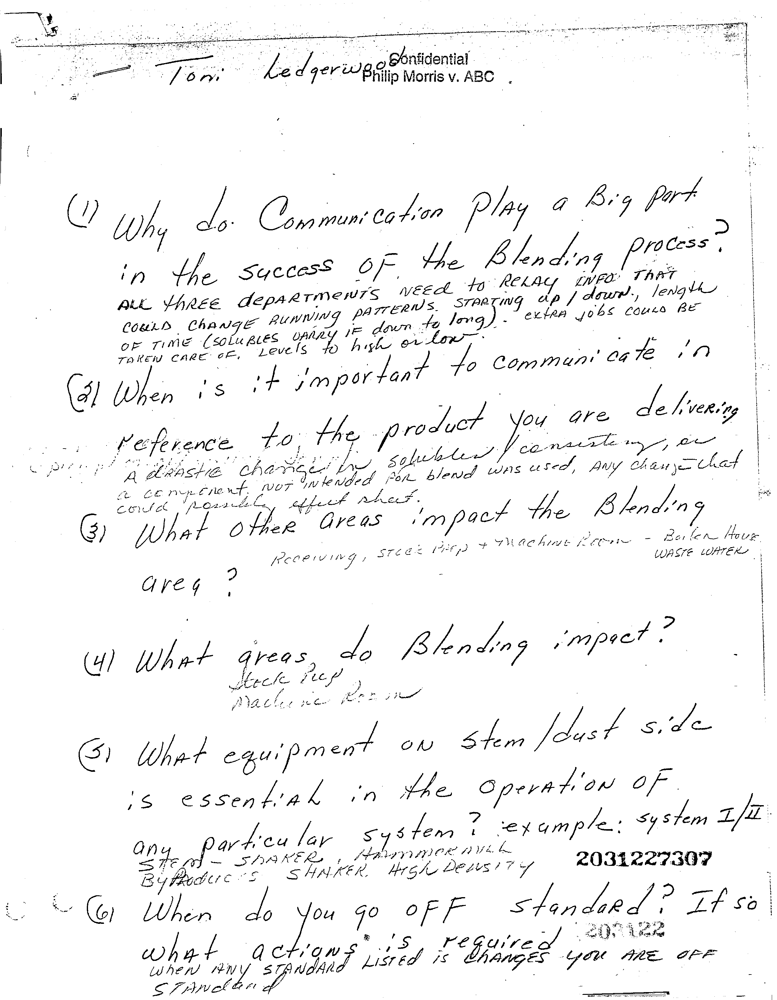 Toni Ledgerwood
Confidential
Philip Morris v. ABC
(1) Why do Communication Play a Big Part
in the success OF the Blending Process?
ALL three departments NEED to RELAY INFO THAT
COULD CHANGE RUNNING PATTERNS STARTING up / down, length
OF TIME (SOLUBLES VARRY IF down to long). EXTRA JOBS COULD BE
TAKEN CARE OF. Levels to high or low
(2) When is it important to communicate in
reference to the product you are delivering
A drastic change in solubles / consistency, or
a component NOT intended FOR blend was used, ANY change that
could possibly effect sheet.
(3) What other areas impact the Blending
Receiving, Stock Prep + Machine Room - Boiler House
WASTE WATER
area ?
(4) What areas do Blending impact?
Stock Prep
Machine Room
(5) What equipment on stem/dust side
is essential in the operation OF
any particular system? example: system I/II
STEM - SHAKER, HAMMERMILL
2031227307
ByProducts SHAKER High DENSITY
(6) When do you go OFF standard? If so
203122
what actions is required
WHEN ANY STANDARD LISTED is CHANGES YOU ARE OFF
STANdard